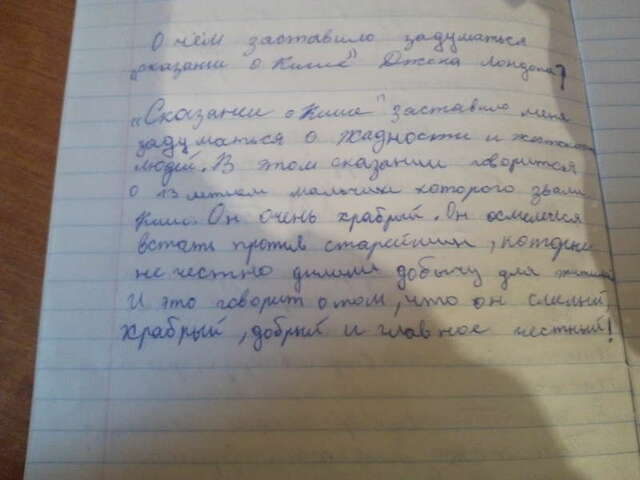 О чём заставило задуматься
„сказании о Кише" Джека Лондона?
„Сказании о Кише" заставило меня
задуматься о жадности и жестокости
людей. В этом сказании говориться
о 13 летнем мальчике которого звали
Киш. Он очень храбрый. Он осмелился
встать против старейшин, которые
не честно делили добычу для
И это говорит о том, что он смелый,
храбрый, добрый и главное честный!